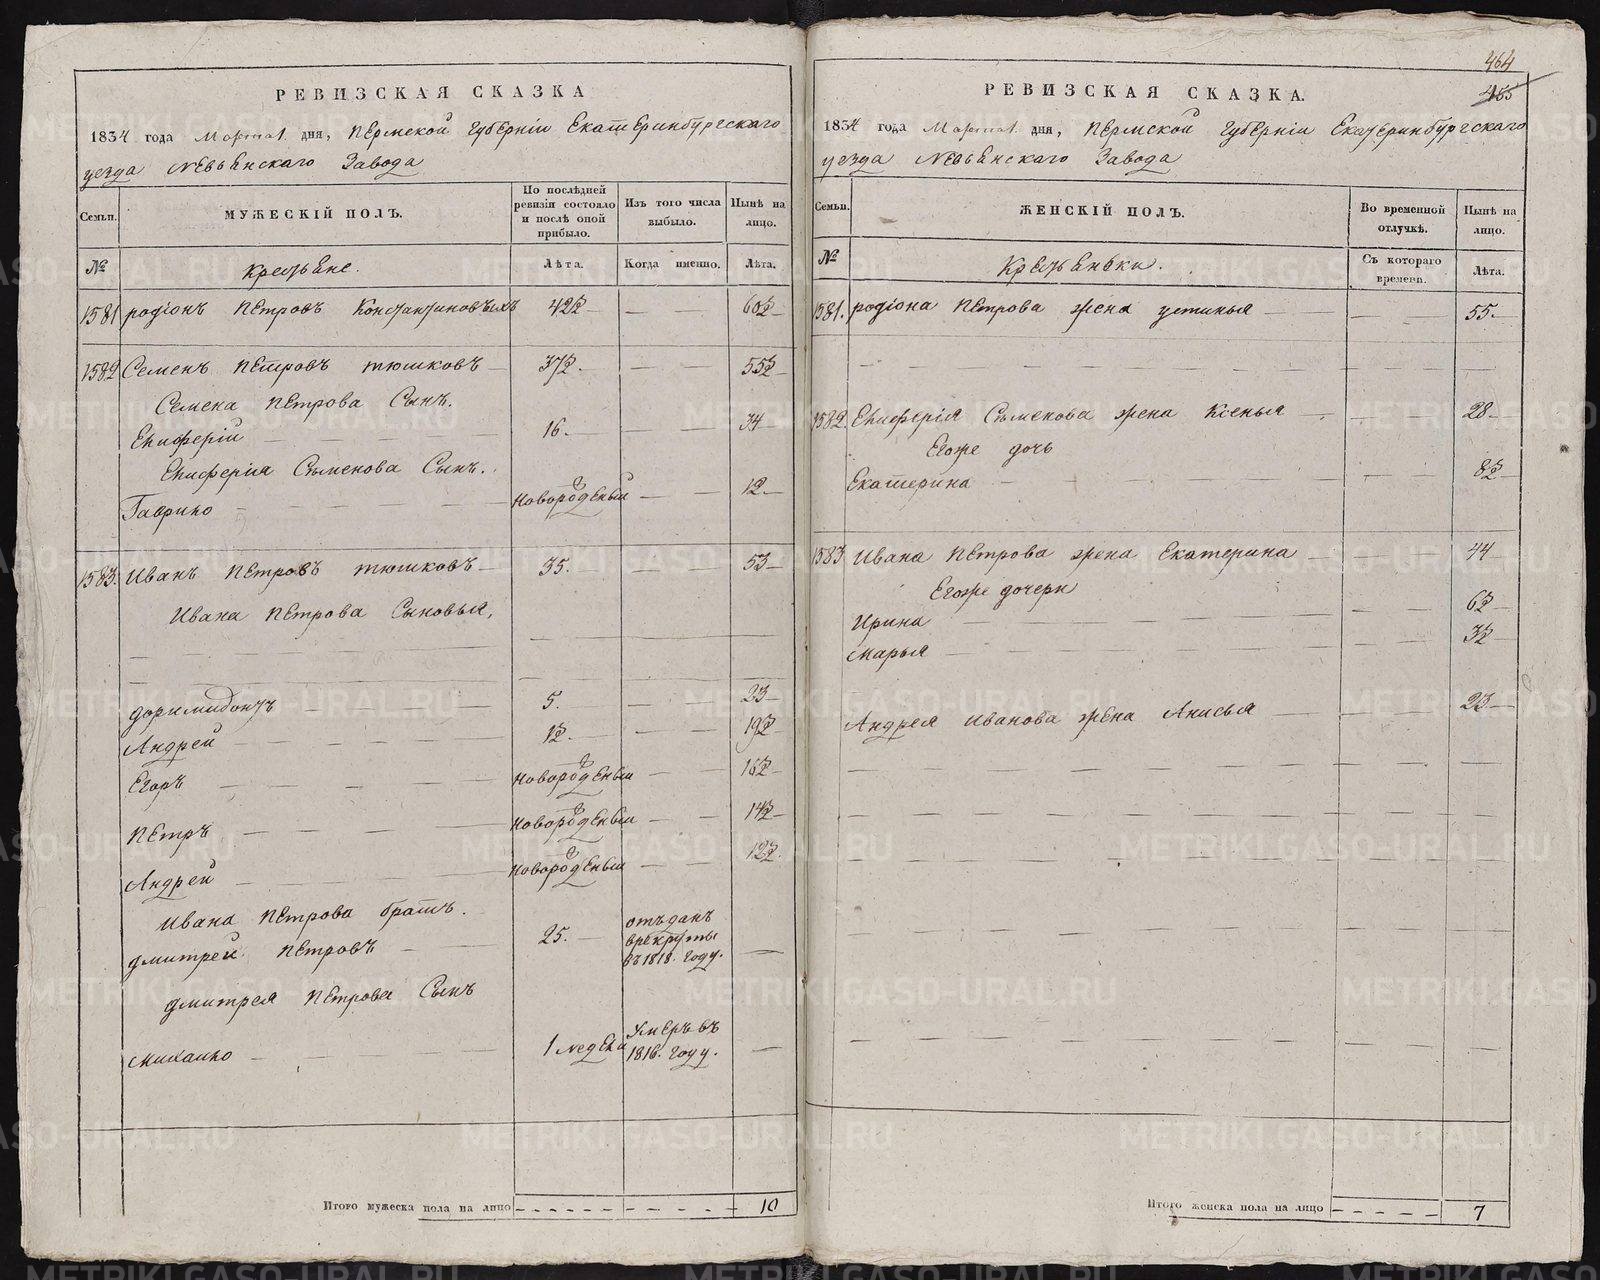 РЕВИЗСКАЯ СКАЗКА
1834 года Марта 1 дня, Пермской Губерніи Екатеринбургскаго
уезда Невьенскаго Завода
Семьи.
МУЖЕСКІЙ ПОЛЪ.
По послѣдней
ревизіи состояло
и послѣ оной
прибыло.
Изъ того числа
выбыло.
Нынѣ на
лицо.
№
Крестьене.
Лѣта.
Когда именно.
Лѣта.
1581 родіонъ Петровъ Константиновыхъ 42½ 60½
1582 Семенъ Петровъ тюшковъ 37½. 55½
Семена Петрова Сынъ.
Епиферій 16. 34
Епиферія Семенова Сынъ.
Гаврило новорожденый 12
1583. Иванъ Петровъ тюшковъ 35. 53
Ивана Петрова Сыновья,
доримидонтъ 5. 23
Андрей 1½. 19½
Егоръ новорожденый 16½
Петръ новорожденый 14½
Андрей новорожденый 12½.
Ивана Петрова братъ.
дмитрей Петровъ 25.
отъданъ
врекруты
въ 1818. году.
дмитрея Петрова Сынъ
михаило 1 недели
умеръ въ
1816. году.
Итого мужеска пола на лицо 10
464
455
РЕВИЗСКАЯ СКАЗКА.
1834 года Марта 1. дня, Пермской Губерніи Екатеринбургскаго
уезда Невьенскаго Завода
Семьи.
ЖЕНСКІЙ ПОЛЪ.
Во временной
отлучкѣ.
Нынѣ на
лицо.
№
Крестьенки.
Съ котораго
времени.
Лѣта.
1581. родіона Петрова жена устинья 55.
1582. Епиферія Семенова жена Ксенья 28
Егоже дочь
Екатерина 8½
1583 Ивана Петрова жена Екатерина 44
Егоже дочери
Ирина 6½
марья 3½
Андрея иванова жена Анисья 23
Итого женска пола на лицо 7
METRIKI.GASO-URAL.RU